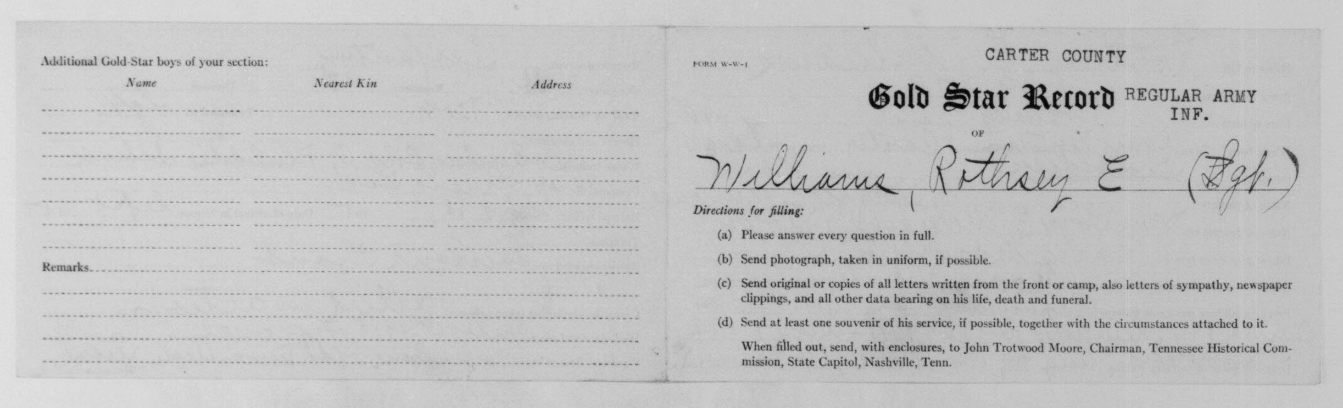 Additional Gold-Star boys of your section:
Name Nearest Kin Address
Remarks
FORM W-W-1
CARTER COUNTY
Gold Star Record REGULAR ARMY
INF.
OF
Williams, Rothsey E (Sgt.)
Directions for filling:
(a) Please answer every question in full.
(b) Send photograph, taken in uniform, if possible.
(c) Send original or copies of all letters written from the front or camp, also letters of sympathy, newspaper
clippings, and all other data bearing on his life, death and funeral.
(d) Send at least one souvenir of his service, if possible, together with the circumstances attached to it.
When filled out, send, with enclosures, to John Trotwood Moore, Chairman, Tennessee Historical Com-
mission, State Capitol, Nashville, Tenn.